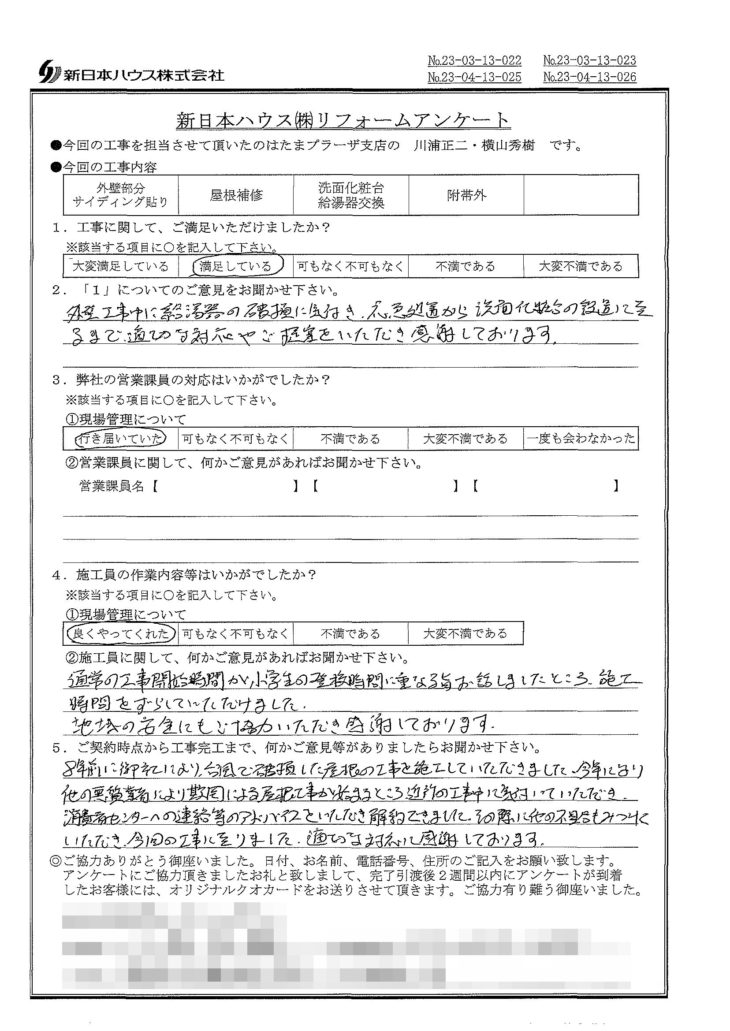 新日本ハウス株式会社
№23-03-13-022 №23-03-13-023
№23-04-13-025 №23-04-13-026
新日本ハウス㈱リフォームアンケート
●今回の工事を担当させて頂いたのはたまプラーザ支店の 川浦正二・横山秀樹 です。
●今回の工事内容
外壁部分 サイディング貼り 屋根補修 洗面化粧台 給湯器交換 附帯外
1．工事に関して、ご満足いただけましたか？
※該当する項目に○を記入して下さい。
大変満足している 満足している 可もなく不可もなく 不満である 大変不満である
2．「1」についてのご意見をお聞かせ下さい。
外壁工事中に給湯器の破損に気付き、応急処置から洗面化粧台の設置に至
るまで、適切な対応やご提案をいただき感謝しております。
3．弊社の営業課員の対応はいかがでしたか？
※該当する項目に○を記入して下さい。
①現場管理について
行き届いていた 可もなく不可もなく 不満である 大変不満である 一度も会わなかった
②営業課員に関して、何かご意見があればお聞かせ下さい。
営業課員名【 】【 】【 】
4．施工員の作業内容等はいかがでしたか？
※該当する項目に○を記入して下さい。
①現場管理について
良くやってくれた 可もなく不可もなく 不満である 大変不満である
②施工員に関して、何かご意見があればお聞かせ下さい。
通常の工事開始時間が小学生の登校時間に重なる旨お話しましたところ、施工
時間をずらしていただけました。
地域の安全にもご協力いただき感謝しております。
5．ご契約時点から工事完工まで、何かご意見等がありましたらお聞かせ下さい。
8年前に御社により、台風で破損した屋根の工事を施工していただきました。今年になり
他の悪質業者により欺罔による屋根工事が始まるところ近所の工事中に気付いていただき、
消費者センターへの連絡等のアドバイスをいただき解約できました。その際に他の不具合もみつけて
いただき、今回の工事に至りました。適切な対応に感謝しております。
◎ご協力ありがとう御座いました。日付、お名前、電話番号、住所のご記入をお願い致します。
アンケートにご協力頂きましたお礼と致しまして、完了引渡後2週間以内にアンケートが到着
したお客様には、オリジナルクオカードをお送りさせて頂きます。ご協力有り難う御座いました。